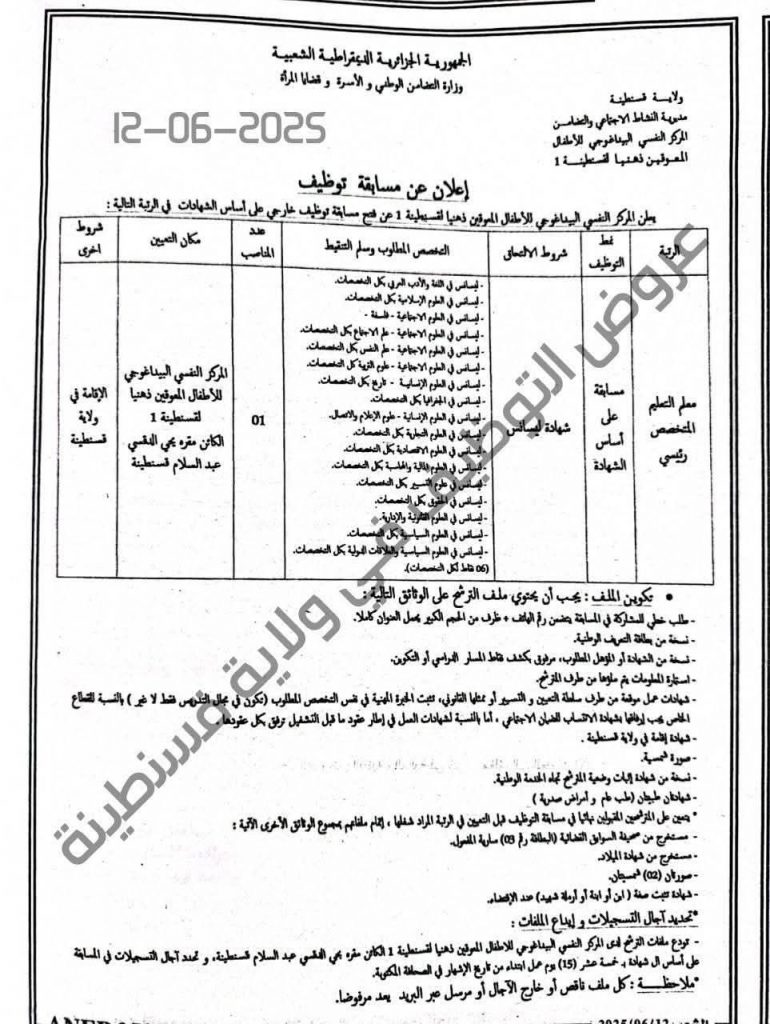 الجمهورية الجزائرية الديمقراطية الشعبية
وزارة التضامن الوطني و الأسرة و قضايا المرأة
ولاية قسنطينة
مديرية النشاط الاجتماعي والتضامن
المركز النفسي البيداغوجي للأطفال
المعوقين ذهنيا لقسنطينة 1
12-06-2025
إعلان عن مسابقة توظيف
يعلن المركز النفسي البيداغوجي للأطفال المعوقين ذهنيا لقسنطينة 1 عن فتح مسابقة توظيف خارجي على أساس الشهادات في الرتبة التالية :
الرتبة
نمط التوظيف
شروط الالتحاق
التخصص المطلوب وسلم التنقيط
عدد المناصب
مكان التعيين
شروط اخرى
معلم التعليم
المتخصص
رئيسي
مسابقة
على
أساس
الشهادة
شهادة ليسانس
- ليسانس في اللغة والأدب العربي بكل التخصصات.
- ليسانس في العلوم الإسلامية بكل التخصصات.
- ليسانس في العلوم الاجتماعية - فلسفة -
- ليسانس في العلوم الاجتماعية - علم الاجتماع بكل التخصصات.
- ليسانس في العلوم الاجتماعية - علم النفس بكل التخصصات.
- ليسانس في العلوم الاجتماعية - علوم التربية بكل التخصصات.
- ليسانس في العلوم الإنسانية - تاريخ بكل التخصصات.
- ليسانس في الجغرافيا بكل التخصصات.
- ليسانس في العلوم الإنسانية - علوم الإعلام والاتصال.
- ليسانس في العلوم التجارية بكل التخصصات.
- ليسانس في العلوم الاقتصادية بكل التخصصات.
- ليسانس في العلوم المالية والمحاسبة بكل التخصصات.
- ليسانس في علوم التسيير بكل التخصصات.
- ليسانس في الحقوق بكل التخصصات.
- ليسانس في العلوم القانونية والإدارية.
- ليسانس في العلوم السياسية بكل التخصصات.
- ليسانس في العلوم السياسية والعلاقات الدولية بكل التخصصات.
(06 نقاط لكل التخصصات).
01
المركز النفسي البيداغوجي
للأطفال المعوقين ذهنيا
لقسنطينة 1
الكائن مقره بحي الدقسي
عبد السلام قسنطينة
الإقامة في
ولاية
قسنطينة
• تكوين الملف : يجب أن يحتوي ملف الترشح على الوثائق التالية :
- طلب خطي للمشاركة في المسابقة يتضمن رقم الهاتف + ظرف من الحجم الكبير يحمل العنوان كاملا.
- نسخة من بطاقة التعريف الوطنية.
- نسخة من الشهادة أو المؤهل المطلوب، مرفوق بكشف نقاط المسار الدراسي أو التكوين.
- استمارة المعلومات يتم ملؤها من طرف المترشح.
- شهادات عمل موقعة من طرف سلطة التعيين و التسيير أو ممثلها القانوني، تثبت الخبرة المهنية في نفس التخصص المطلوب (تكون في مجال التدريس فقط لا غير ) بالنسبة للقطاع
الخاص يجب إرفاقها بشهادة الانتساب للضمان الاجتماعي ، أما بالنسبة لشهادات العمل في إطار عقود ما قبل التشغيل ترفق بكل عقودها .
- شهادة إقامة في ولاية قسنطينة .
- صورة شمسية.
- نسخة من شهادة إثبات وضعية المترشح تجاه الخدمة الوطنية.
- شهادتان طبيتان (طب عام و أمراض صدرية )
* يتعين على المترشحين المقبولين نهائيا في مسابقة التوظيف قبل التعيين في الرتبة المراد شغلها ، إتمام ملفاتهم بمجموع الوثائق الأخرى الآتية :
- مستخرج من صحيفة السوابق القضائية (البطاقة رقم 03) سارية المفعول.
- مستخرج من شهادة الميلاد.
- صورتان (02) شمسيتان.
- شهادة تثبت صفة ( ابن أو ابنة أو أرملة شهيد) عند الإقتضاء.
*تحديد آجال التسجيلات و إيداع الملفات :
- تودع ملفات الترشح لدى المركز النفسي البيداغوجي للأطفال المعوقين ذهنيا لقسنطينة 1 الكائن مقره بحي الدقسي عبد السلام قسنطينة، و تحدد آجال التسجيلات في المسابقة
على أساس ال شهادة بـ خمسة عشر (15) يوم عمل ابتداء من تاريخ الإشهار في الصحافة المكتوبة.
*ملاحظة : كل ملف ناقص أو خارج الآجال أو مرسل عبر البريد يعد مرفوضا.
2025/06/12
عروض التوظيف في ولاية قسنطينة